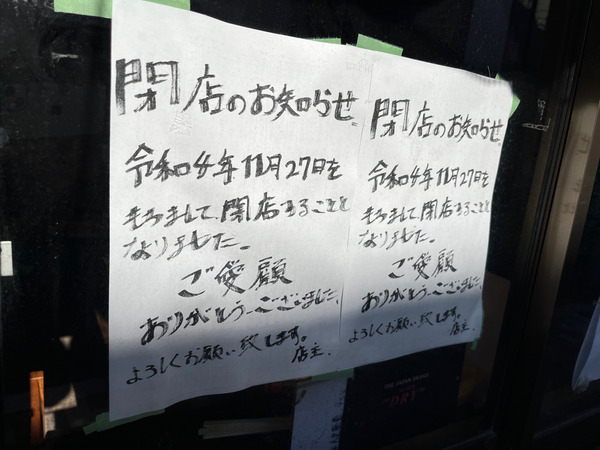 閉店のお知らせ。
令和4年11月27日を
もちまして、閉店することと
なりました。
ご愛顧
ありがとうーございました。
よろしくお願い致します。
店主.
閉店のお知らせ。
令和4年11月27日を
もちまして、閉店することと
なりました。
ご愛顧
ありがとうーございました。
よろしくお願い致します。
店主.